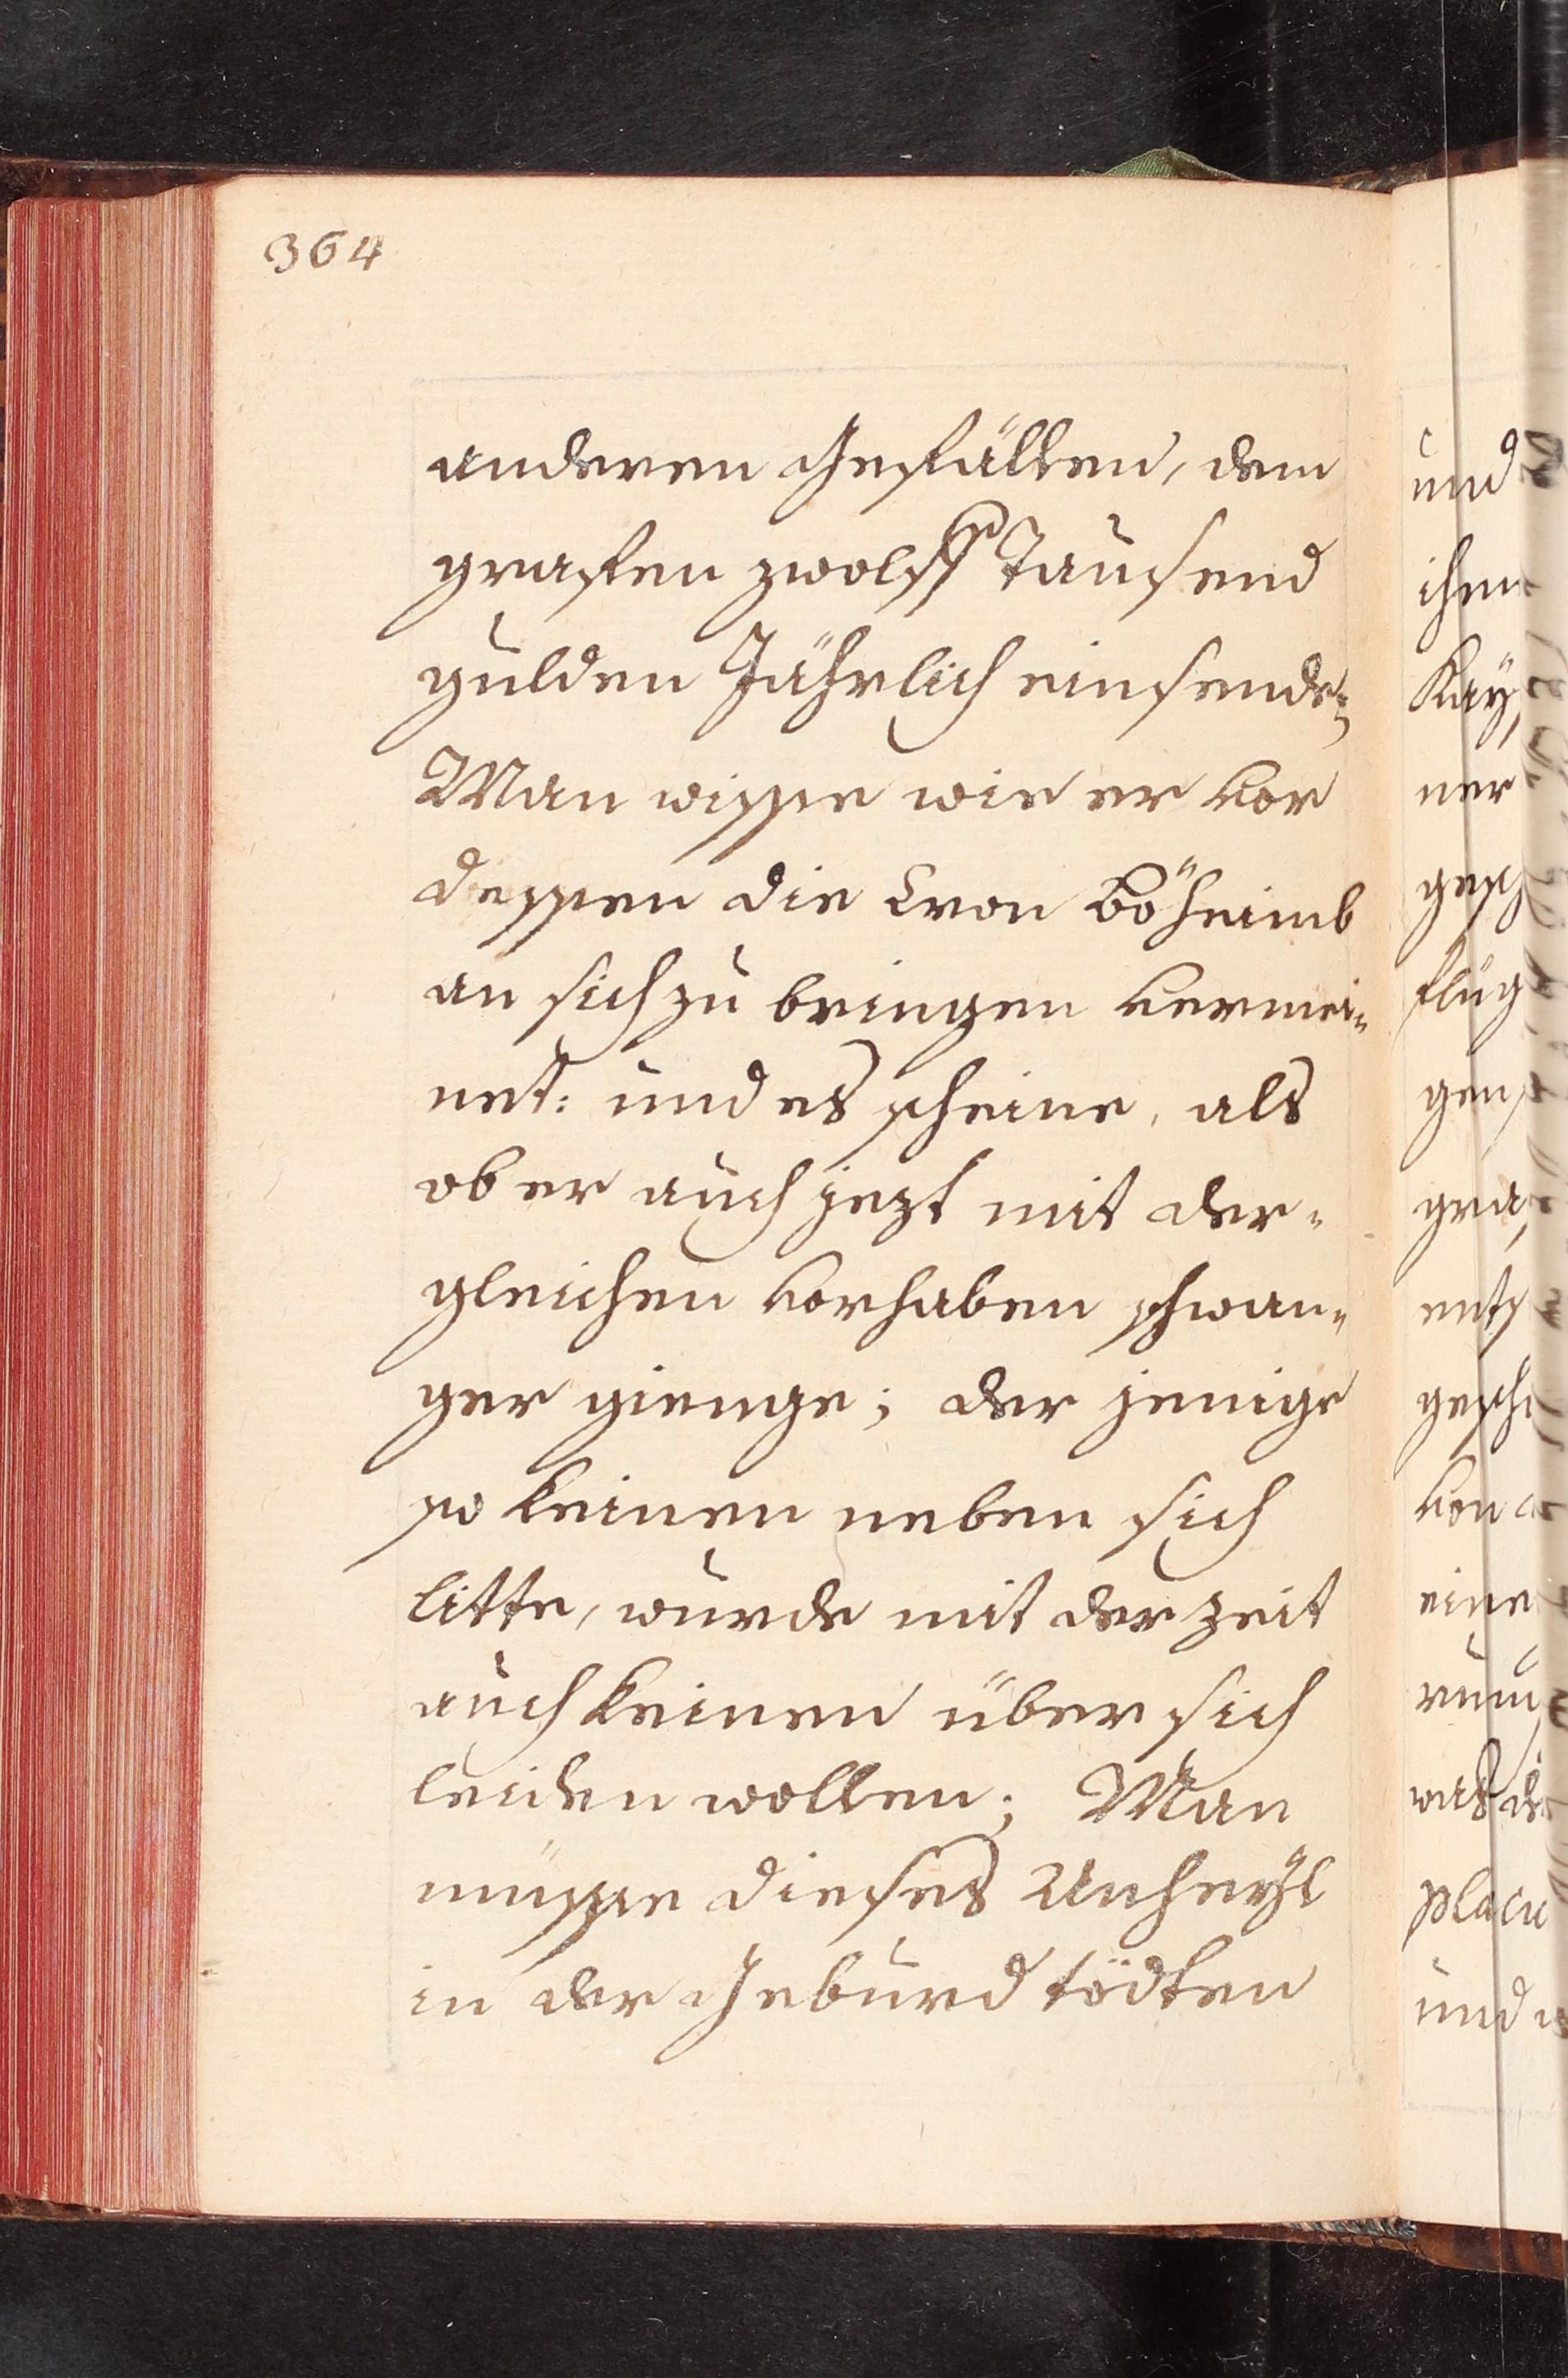 364
anderen Gefällen, dem
grafen zwolff Tausend
gulden Jährlich einsende;
Man wisse wie er vor
dessen die Cron Böheimb
an sich zu bringen vermei=
net: und es scheine, als
ob er auch jezt mit der=
gleichen vorhaben schwan=
ger gienge; der jenige
so keinen neben sich
litte, wurde mit der zeit
auch keinen über sich
leiden wollen; Man
müsse dieses Unheyl
in der Geburd tödten
und
ihm
Kay
ner
flug
gen
gra
ents
gesch
von
eine
was
place
und